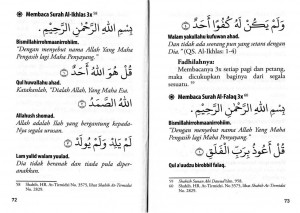 ◉ Membaca Surah Al-Ikhlas 3x
بِسْمِ اللهِ الرَّحْمٰنِ الرَّحِيْمِ.
Bismillahirrahmaanirrohiim.
"Dengan menyebut nama Allah Yang Maha Pengasih lagi Maha Penyayang."
قُلْ هُوَ اللهُ أَحَدٌ
Qul huwallahu ahad.
Katakanlah, "Dialah Allah Yang Maha Esa.
اَللهُ الصَّمَدُ
Allahush shomad.
Allah adalah Ilah yang bergantung kepada-
Nya segala urusan.
لَمْ يَلِدْ وَلَمْ يُوْلَدْ
Lam yalid walam yuulad.
Dia tidak beranak dan tiada pula diper-
anakkan.
58 Shahih, HR. At-Tirmidzi No. 3575, lihat Shahih At-Tirmidzi
No. 2829.
72
وَلَمْ يَكُنْ لَهُ كُفُوًا أَحَدٌ
Walam yakullahu kufuwan ahad.
Dan tidak ada seorang pun yang setara dengan
Dia." (QS. Al-Ikhlas: 1-4)
Fadhilahnya:
Membacanya 3x setiap pagi dan petang,
maka dicukupkan baginya dari segala
sesuatu.
◉ Membaca Surah Al-Falaq 3x
بِسْمِ اللهِ الرَّحْمٰنِ الرَّحِيْمِ
Bismillahirrahmaanirrohiim.
"Dengan menyebut nama Allah Yang Maha
Pengasih lagi Maha Penyayang."
قُلْ أَعُوْذُ بِرَبِّ الْفَلَقِ
Qul a'uudzu birobbil falaq.
No. 2829.
73